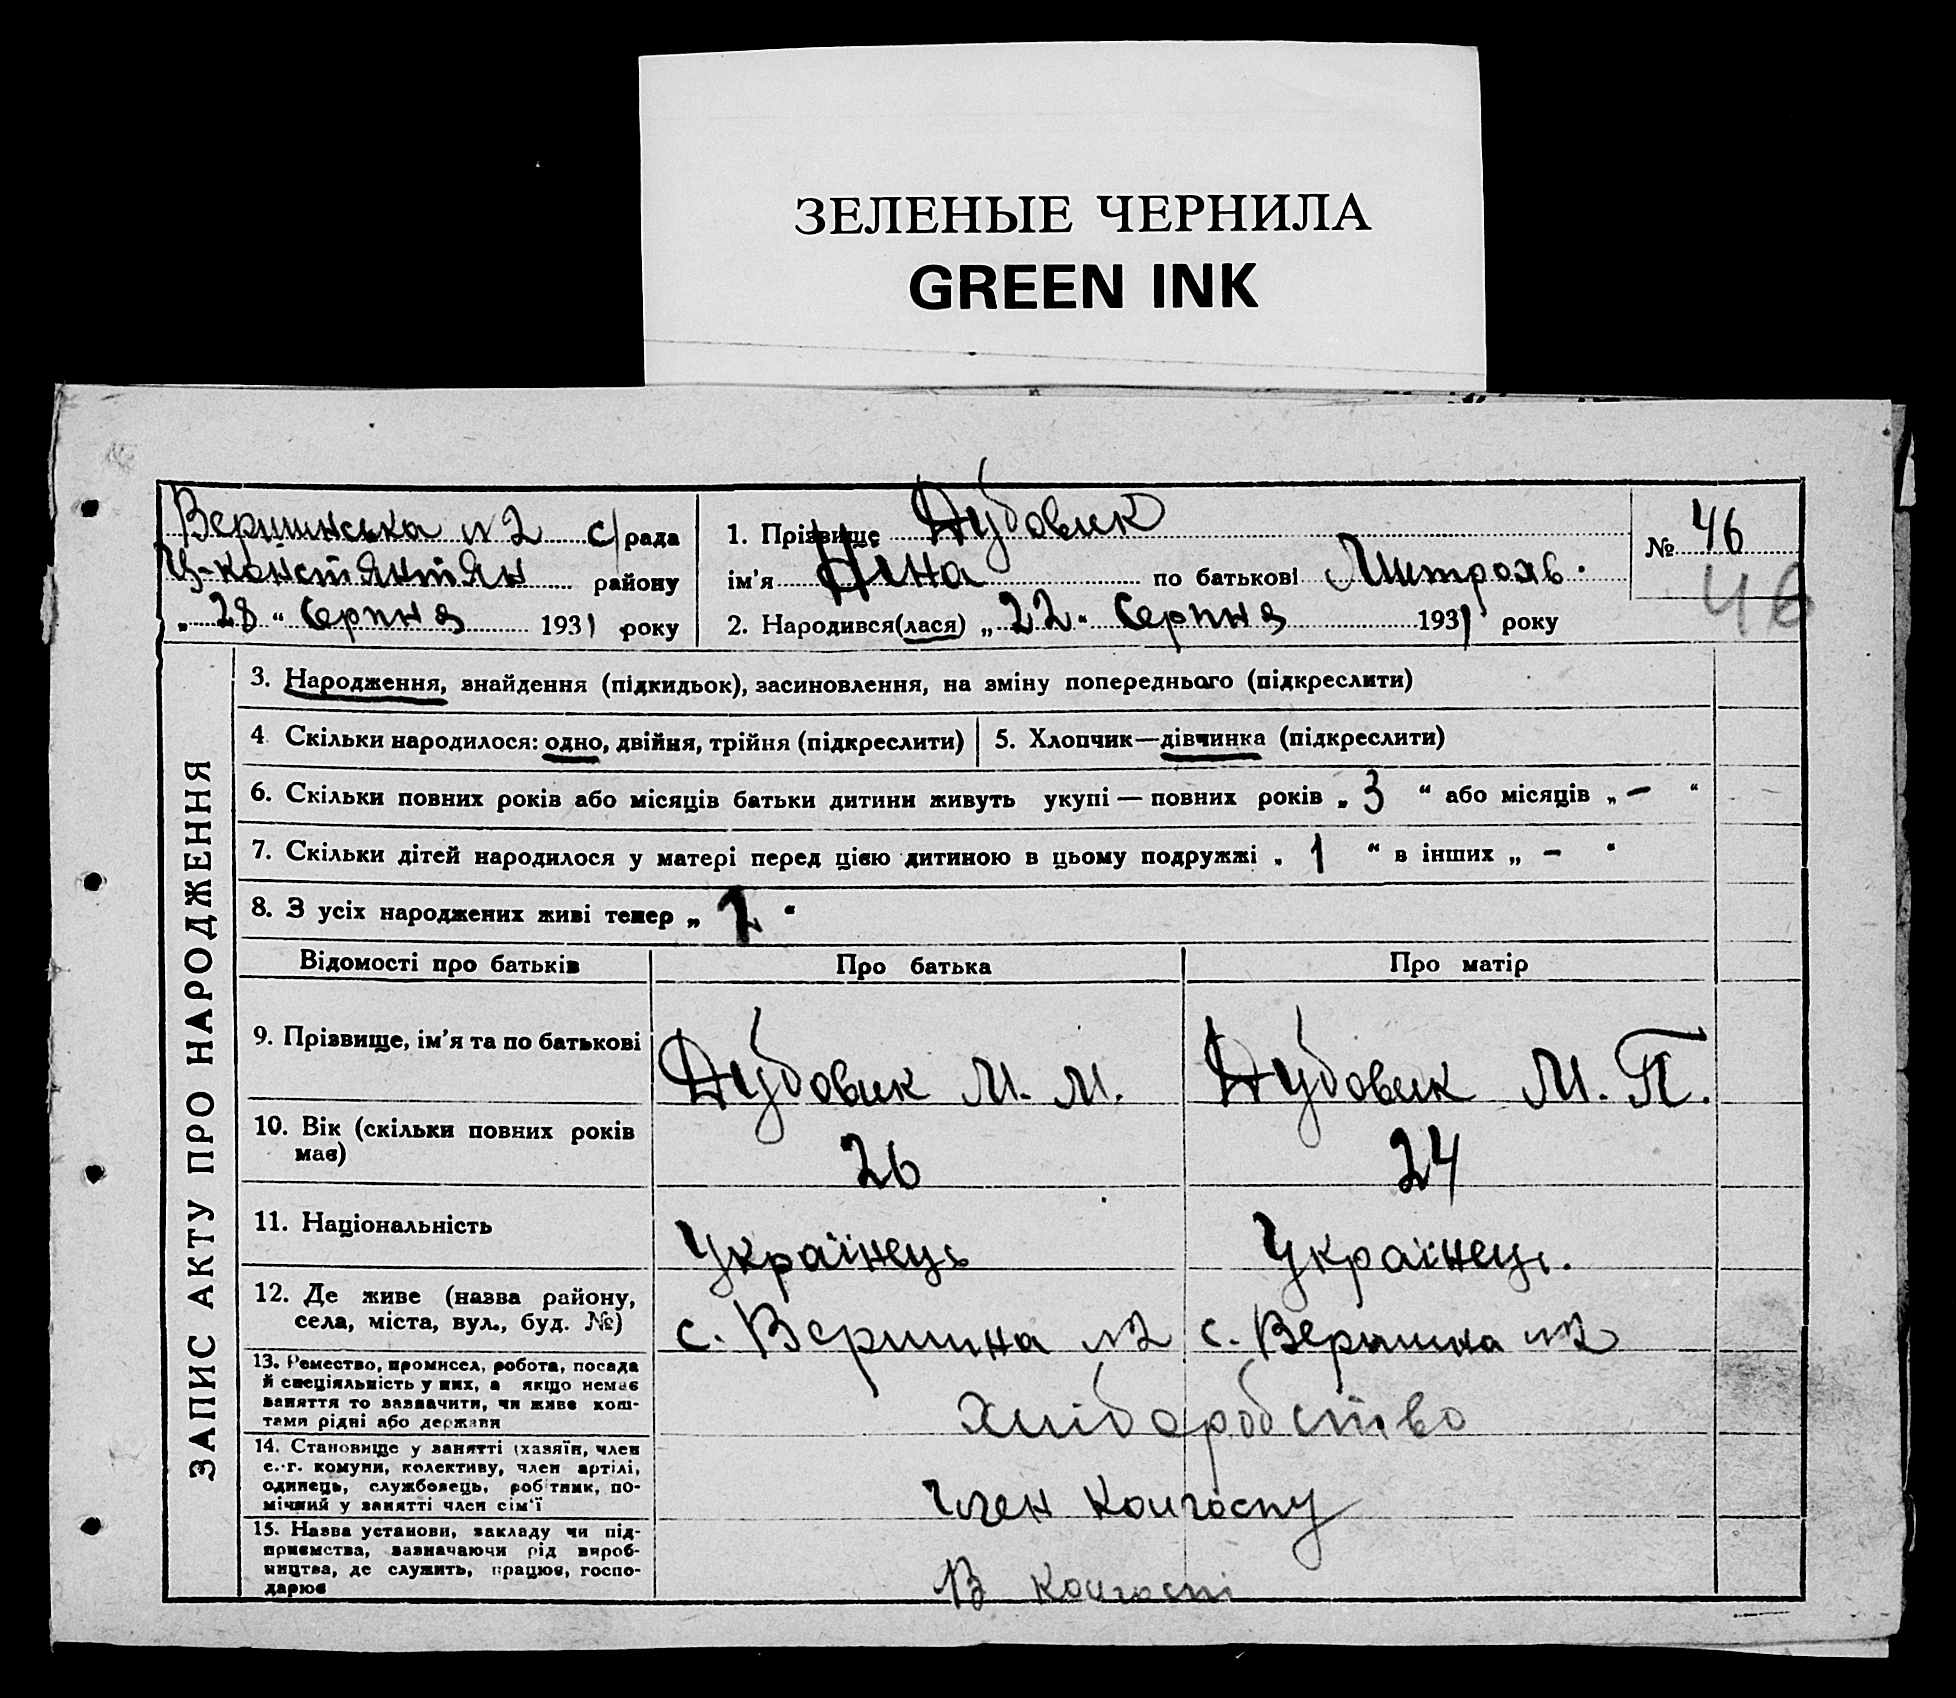 ЗЕЛЕНЫЕ ЧЕРНИЛА
GREEN INK
Вершинська №2 с/рада
Ц-констянтян району
„28“ Серпня 1931 року
1. Прізвище Дубовик
ім’я Ніна по батькові Митрохв.
2. Народився(лася) „22“ Серпня 1931 року
№ 46
46
ЗАПИС АКТУ ПРО НАРОДЖЕННЯ
3. Народження, знайдення (підкидьок), засиновлення, на зміну попереднього (підкреслити)
4 Скільки народилося: одно, двійня, трійня (підкреслити)
5. Хлопчик—дівчинка (підкреслити)
6. Скільки повних років або місяців батьки дитини живуть укупі — повних років „ 3 “ або місяців „ – “
7. Скільки дітей народилося у матері перед цією дитиною в цьому подружжі „ 1 “ в інших „ – “
8. З усіх народжених живі тепер „ 2 “
Відомості про батьків Про батька Про матір
9. Прізвище, ім’я та по батькові Дубовик М. М. Дубовик М. П.
10. Вік (скільки повних років
має) 26 24
11. Національність Українець Українец.
12. Де живе (назва району,
села, міста, вул., буд. №) с. Вершина №2 с. Вершина №2
13. Ремество, промисел, робота, посада
й спеціяльність у них, а якщо немає
заняття то зазначити, чи живе кош-
тами рідні або держави
хліборобство
14. Становище у занятті (хазяїн, член
с.-г. комуни, колективу, член артілі,
одинець, службовець, робітник, по-
мічний у занятті член сім’ї
Член колгоспу
15. Назва установи, закладу чи під-
приємства, зазначаючи рід вироб-
ництва, де служить, працює, госпо-
дарює
В колгоспі